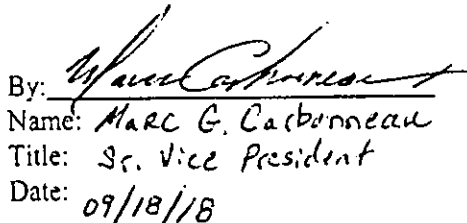 By: Marc Carbonneau
Name: Marc G. Carbonneau
Title: Sr. Vice President
Date: 09/18/18